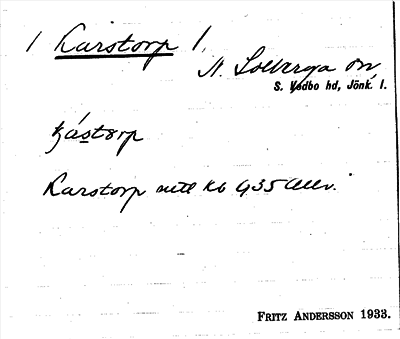 / Karstorp /
N. Solberga sn
S. Vedbo hd, Jönk. l.
Karstorp mtl Kb 935
FRITZ ANDERSSON 1933.